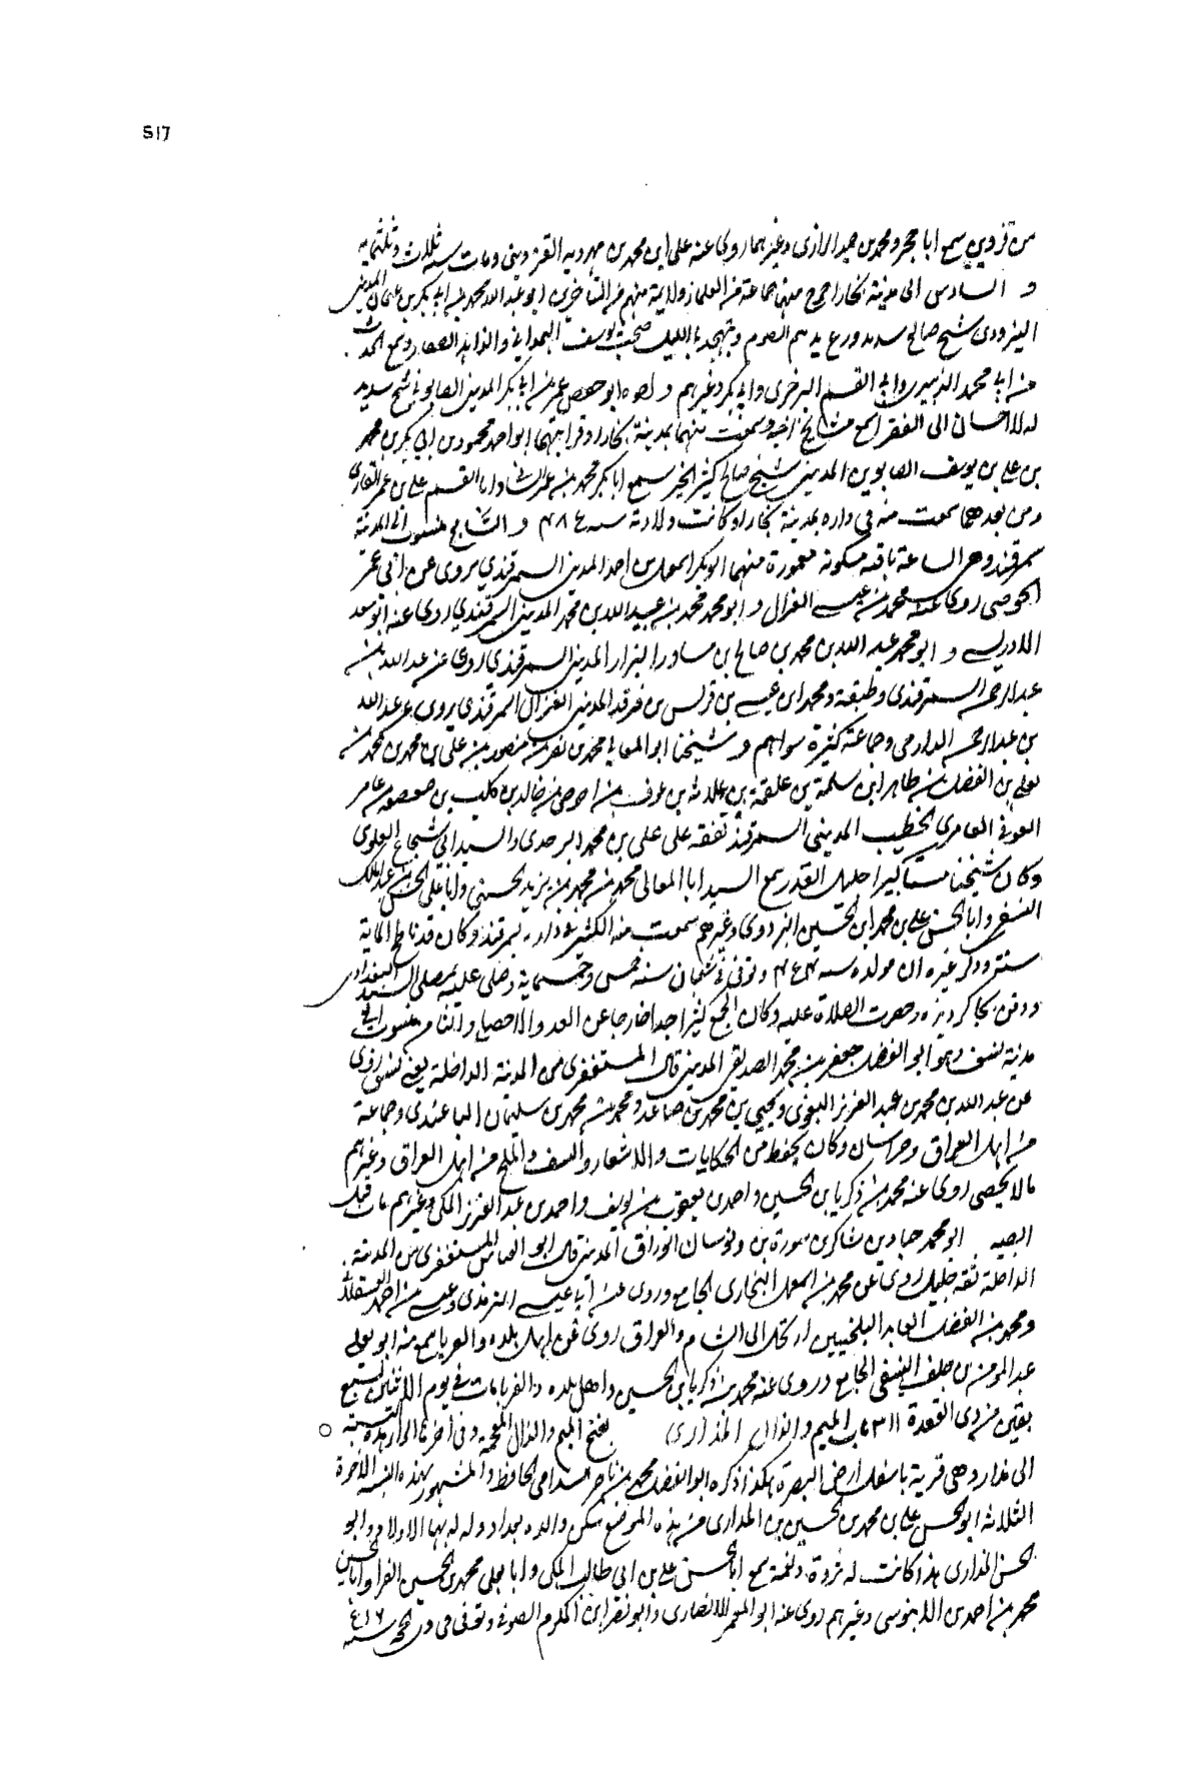 517
من قزوين سمع ابا حجر ومحمد بن حميد الرازى وغيرهما روى عنه على ابن محمد بن مهرويه القزوينى ومات سنة ثلاث وثلثمايه
و السادس الى مدينة بخارا خرج منها جماعة من العلما منهم من المتاخرين ابو عبد الله محمد بن ابى بكر بن عثمان المدينى
البزدوى شيخ صالح سديد ورع يديم الصوم وتهجد بالليل صحب يوسف الهمدانى والزاهد الصفار وسمع الحديث
من ابى محمد الزبيرى وابى القسم البرخرى وابى بكر وغيرهم و اخوه ابو حفص عمر بن ابى بكر المدينى الصابونى شيخ سديد
له الاحسان الى الفقرا سمع مشايخ اخيه وسمعت منهما بمدينة بخارا وقرابتهما ابو احمد محمود بن ابى بكر بن محمد
بن على بن يوسف الصابونى المدينى شيخ صالح كثير الخير سمع ابا بكر محمد بن وابا القسم على بن عمر
ومن بعدهما سمعت منه فى داره بمدينة بخارا وكانت ولادته سنة ٤٨ و السابع منسوب الى المدينة
سمرقند وهى الساعة باقية مسكونة معمورة منها ابو بكر اسمعيل بن احمد المدينى السمرقندي يروى عن ابى عمر
الحوضى روى عنه محمد بن عيسى الغزال و ابو محمد محمد بن عبيد الله بن محمد المدينى السمرقندي روى عنه ابو سعد
الادريسى و ابو محمد عبد الله بن محمد بن صالح بن مساور البزار المدينى السمرقندي روى عن عبد الله بن
عبد الرحمن السمرقندى وطبقته ومحمد ابن عيسى بن قريش بن فرقد المدينى الغزال السمرقندي يروى عن عبد الله
بن عبد الرحمن الدارمى وجماعة كثيرة سواهم و شيخنا ابو المعالى محمد بن نصر بن منصور بن على بن محمد بن محمد بن
بن الفضل بن طاهر ابن سلمة بن علقمة بن علاثه بن عوف بن احوص بن خالد بن كلاب بن صعصعه عامر
العوفى العامرى الخطيب المدينى السمرقندى تفقه على على بن محمد البزدوى والسيد ابى شجاع العلوى
وكان شيخنا مسنا كبيرا جليل القدر سمع السيد ابا المعالى محمد بن محمد بن زيد الحسينى وابا على الحسن بن عبد الملك
النسفى وابا الحسن على بن محمد ابن الحسين البزدوى وغيرهم سمعت منه الكثير فى داره بسمرقند وكان قد ناطح الماية
سنة وذكر غيره ان مولده سنة وتوفى فى شعبان سنة خمس وخمسماية وصلى عليه بمصلى السيد البغدادى
ودفن بجاكرديزه وحضرت الصلاة عليه وكان الجمع كثيرا جدا خارجا عن العد والاحصا و الثامن منسوب الى
مدينة نسف وهو ابو الفضل جعفر بن محمد الصديق المدينى قال المستغفرى من المدينة الداخلة يعنى نسف روى
عن عبد الله بن محمد بن عبد العزيز البغوى ويحيى بن محمد بن صاعد ومحمد بن محمد بن سليمان الباغندى وجماعة
من اهل العراق وخراسان وكان يحفظ من الحكايات والاشعار والنتف والملح من اهل العراق وغيرهم
مالا يحصى روى عنه محمد بن زكريا بن الحسين واحمد بن يعقوب بن يوسف واحمد بن عبد العزيز المكى وغيرهم مات قبل
ابو محمد حماد بن شاكر بن سورة بن ونوسان الوراق المدينى قال ابو العباس المستغفرى من المدينة
الداخلة ثقة جليل روى عن محمد بن اسمعيل البخارى الجامع وروى عن ابا عيسى الترمذى وعيسى بن احمد العسقلانى
ومحمد بن الفضل العابد البلخيين ارتحل الى الشام والعراق روى عن اهل بلده والغربا سمع منه ابو يعلى
عبد المومن بن خلف النسفى الجامع وروى عنه محمد بن زكريا بن الحسين واهل بلده والغربا مات فى يوم الاثنين لسبع
بقين من ذى القعدة ٣١١ باب الميم والذال المذارى بفتح الميم والذال المعجمة وفى اخرها الرا هذه النسبة
الى مذار وهى قرية باسفل ارض البصرة هكذا ذكره ابو الفضل محمد بن ناصر السلامى الحافظ والمشهور بهذه النسبة الاخوة
الثلاثة ابو الحسن على بن محمد بن الحسين بن المذارى من هذه الموضع سكن والده بغداد وولد له بها الاولاد وابو
الحسن المذارى هذا كانت له ثروة ونعمة سمع ابا الحسن على بن ابى طالب المكى وابا يعلى محمد بن الحسين الفرا وابا الحسين
محمد بن احمد بن الابنوسى وغيرهم روى عنه ابو المعمر الانصارى وابو نصر ابن المكرم الصوفى وتوفى فى ذى الحجة سنة